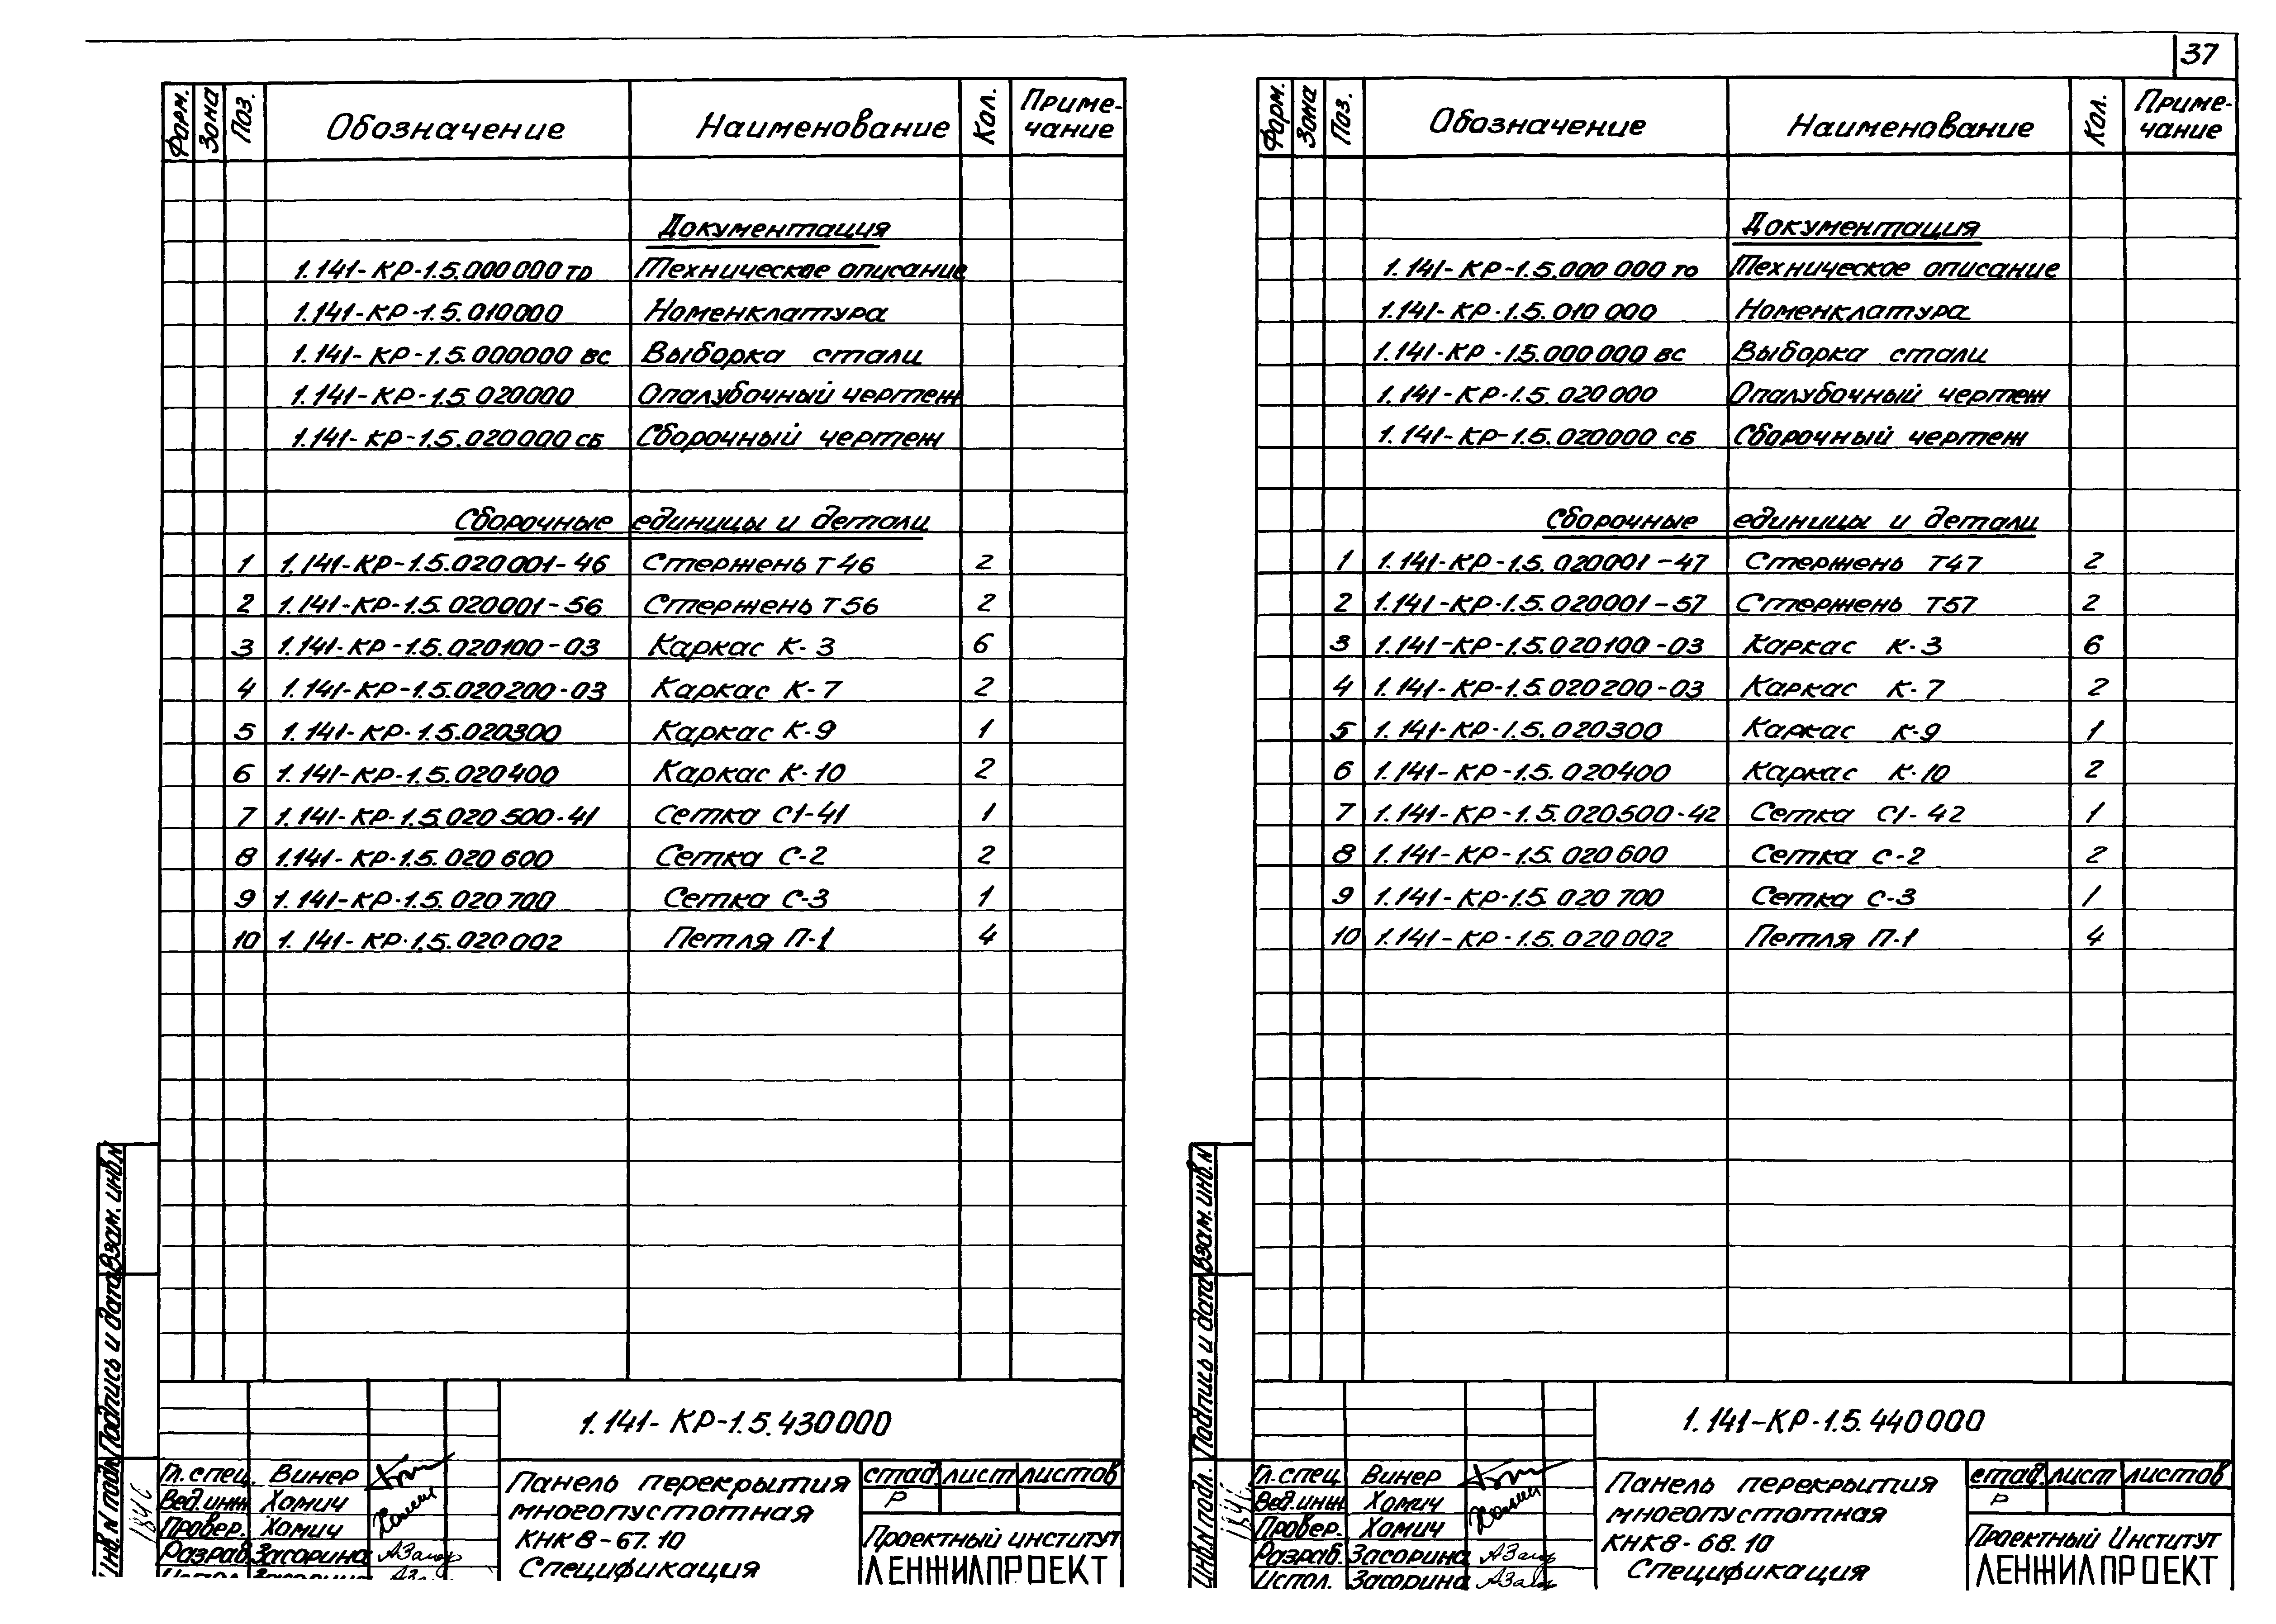 37
Форм. Зона Поз. Обозначение Наименование Кол. Приме-
чание
Документация
1.141-КР-1.5.000000 ТО Техническое описание
1.141-КР-1.5.010000 Номенклатура
1.141-КР-1.5.000000 ВС Выборка стали
1.141-КР-1.5.020000 Опалубочный чертеж
1.141-КР-1.5.020000 СБ Сборочный чертеж
Сборочные единицы и детали
1 1.141-КР-1.5.020001-46 Стержень Т46 2
2 1.141-КР-1.5.020001-56 Стержень Т56 2
3 1.141-КР-1.5.020100-03 Каркас К-3 6
4 1.141-КР-1.5.020200-03 Каркас К-7 2
5 1.141-КР-1.5.020300 Каркас К-9 1
6 1.141-КР-1.5.020400 Каркас К-10 2
7 1.141-КР-1.5.020500-41 Сетка С1-41 1
8 1.141-КР-1.5.020600 Сетка С-2 2
9 1.141-КР-1.5.020700 Сетка С-3 1
10 1.141-КР-1.5.020002 Петля П-1 4
Взам. инв. N
Подпись и дата
Инв. N подл.
1.141-КР-1.5.430000
Гл. спец. Винер
Вед. инж Хомич
Провер. Хомич
Разраб. Засорина
Испол. Засорина
Панель перекрытия
многопустотная
КНК8-67.10
Спецификация
стад. лист листов
Р
Проектный институт
ЛЕНЖИЛПРОЕКТ
Форм. Зона Поз. Обозначение Наименование Кол. Приме-
чание
Документация
1.141-КР-1.5.000 000 ТО Техническое описание
1.141-КР-1.5.010 000 Номенклатура
1.141-КР-1.5.000 000 ВС Выборка стали
1.141-КР-1.5.020 000 Опалубочный чертеж
1.141-КР-1.5.020000 СБ Сборочный чертеж
Сборочные единицы и детали
1 1.141-КР-1.5.020001-47 Стержень Т47 2
2 1.141-КР-1.5.020001-57 Стержень Т57 2
3 1.141-КР-1.5.020100-03 Каркас К-3 6
4 1.141-КР-1.5.020200-03 Каркас К-7 2
5 1.141-КР-1.5.020300 Каркас К-9 1
6 1.141-КР-1.5.020400 Каркас К-10 2
7 1.141-КР-1.5.020500-42 Сетка С1-42 1
8 1.141-КР-1.5.020600 Сетка С-2 2
9 1.141-КР-1.5.020700 Сетка С-3 1
10 1.141-КР-1.5.020002 Петля П-1 4
Взам. инв. N
Подпись и дата
Инв. N подл.
1.141-КР-1.5.440000
Гл. спец. Винер
Вед. инж. Хомич
Провер. Хомич
Разраб. Засорина
Испол. Засорина
Панель перекрытия
многопустотная
КНК8-68.10
Спецификация
стад. лист листов
Р
Проектный Институт
ЛЕНЖИЛПРОЕКТ